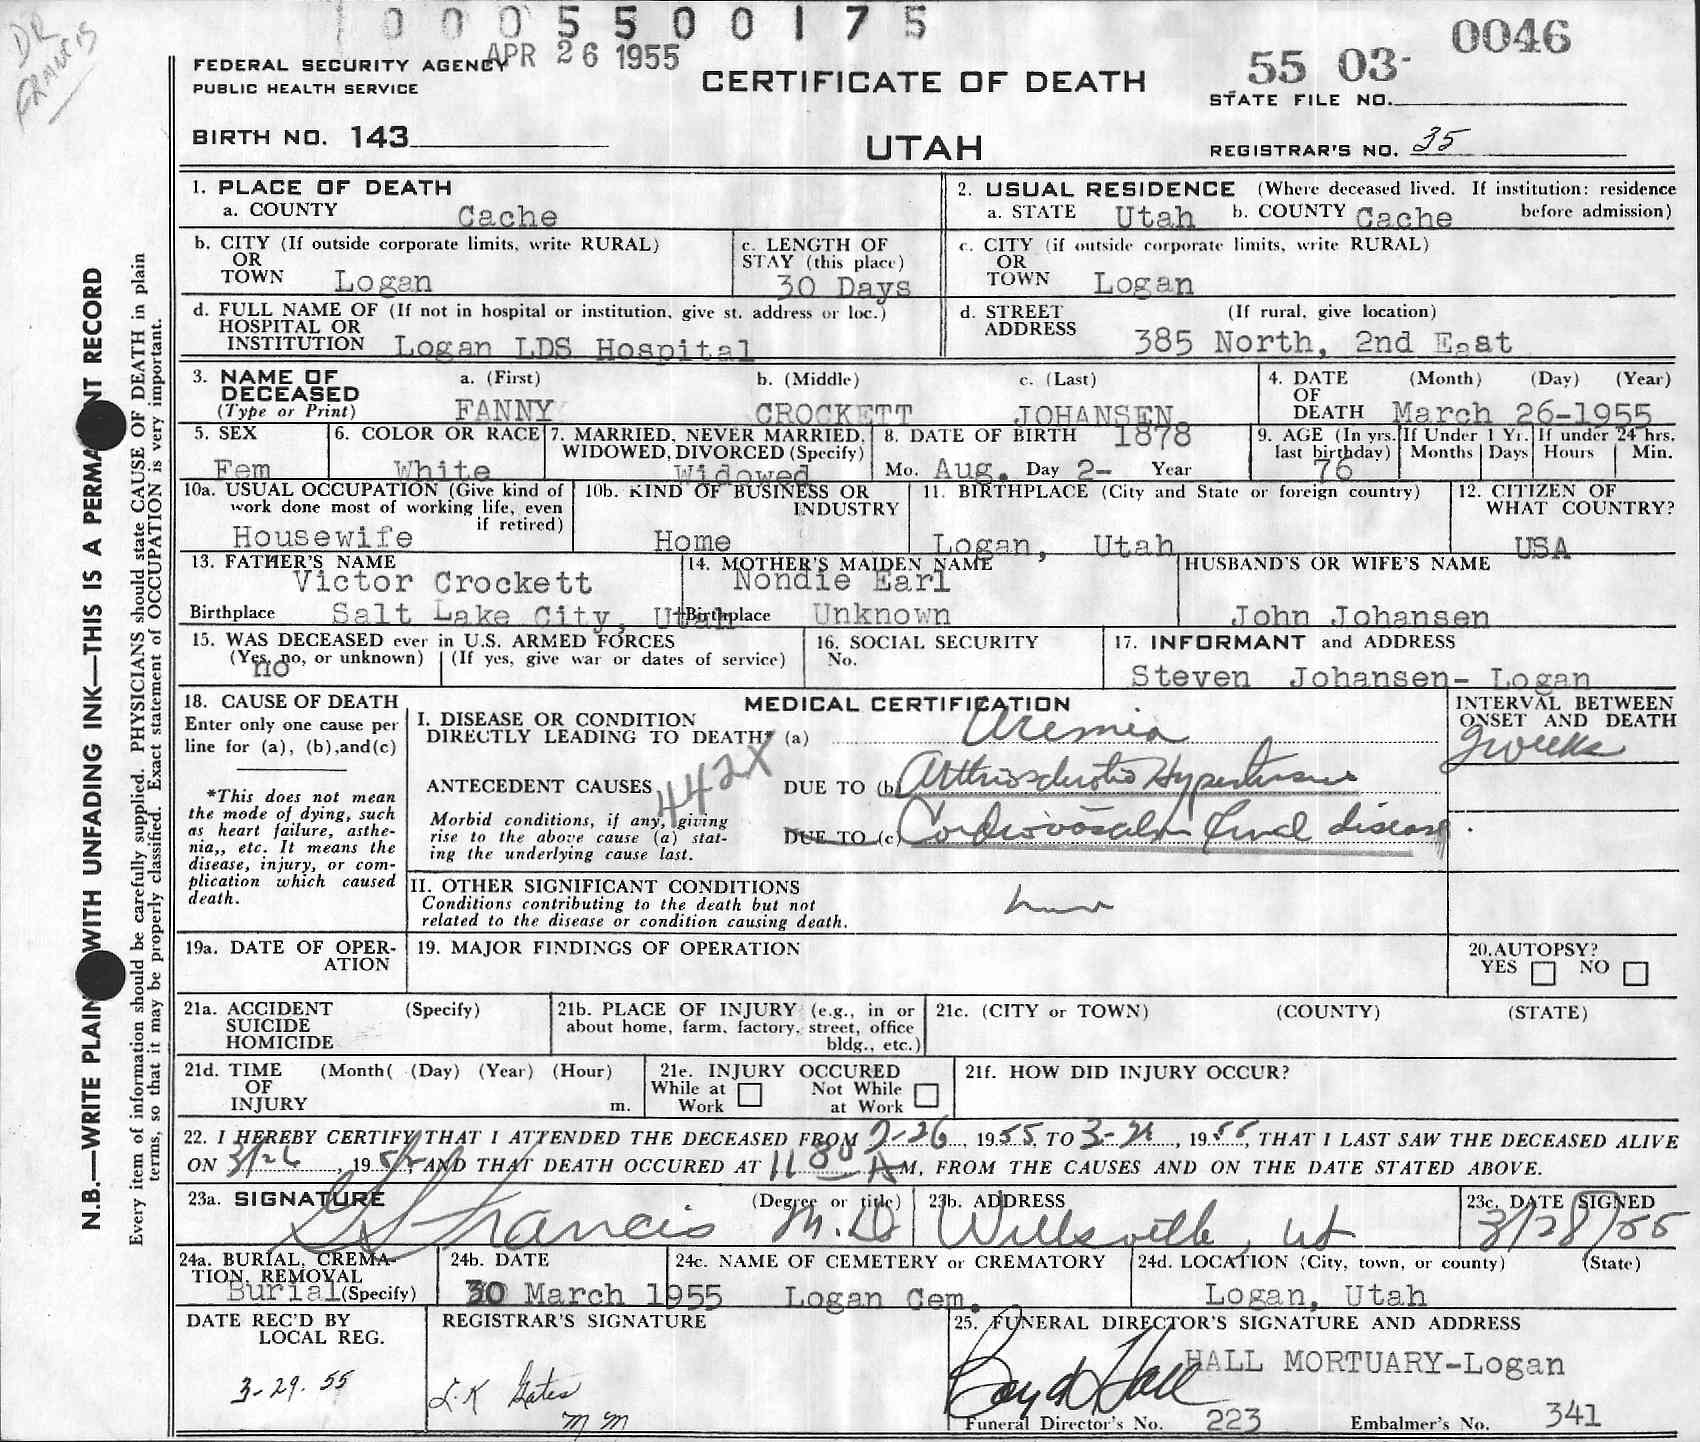 DR FRANCIS
1 0 0 0 5 5 0 0 1 7 5
0046
FEDERAL SECURITY AGENCY APR 26 1955
PUBLIC HEALTH SERVICE
CERTIFICATE OF DEATH
55 03-
STATE FILE NO.
BIRTH NO. 143
UTAH
REGISTRAR'S NO. 35
N.B.—WRITE PLAIN WITH UNFADING INK—THIS IS A PERMA NT RECORD
Every item of information should be carefully supplied. PHYSICIANS should state CAUSE OF DEATH in plain
terms, so that it may be properly classified. Exact statement of OCCUPATION is very important.
1. PLACE OF DEATH
a. COUNTY Cache
2. USUAL RESIDENCE (Where deceased lived. If institution: residence
a. STATE Utah b. COUNTY Cache before admission)
b. CITY (If outside corporate limits, write RURAL)
OR
TOWN Logan
c. LENGTH OF
STAY (this place)
30 Days
c. CITY (if outside corporate limits, write RURAL)
OR
TOWN Logan
d. FULL NAME OF (If not in hospital or institution, give st. address or loc.)
HOSPITAL OR
INSTITUTION Logan LDS Hospital
d. STREET (If rural, give location)
ADDRESS 385 North, 2nd East
3. NAME OF a. (First) b. (Middle) c. (Last)
DECEASED
(Type or Print) FANNY CROCKETT JOHANSEN
4. DATE (Month) (Day) (Year)
OF
DEATH March 26-1955
5. SEX
Fem
6. COLOR OR RACE
White
7. MARRIED, NEVER MARRIED,
WIDOWED, DIVORCED (Specify)
Widowed
8. DATE OF BIRTH 1878
Mo. Aug. Day 2- Year
9. AGE (In yrs. If Under 1 Yr. If under 24 hrs.
last birthday) Months Days Hours Min.
76
10a. USUAL OCCUPATION (Give kind of
work done most of working life, even
if retired)
Housewife
10b. KIND OF BUSINESS OR
INDUSTRY
Home
11. BIRTHPLACE (City and State or foreign country)
Logan, Utah
12. CITIZEN OF
WHAT COUNTRY?
USA
13. FATHER'S NAME
Victor Crockett
Birthplace Salt Lake City, Utah
14. MOTHER'S MAIDEN NAME
Nondie Earl
Birthplace Unknown
HUSBAND'S OR WIFE'S NAME
John Johansen
15. WAS DECEASED ever in U.S. ARMED FORCES
(Yes, no, or unknown) (If yes, give war or dates of service)
no
16. SOCIAL SECURITY
No.
17. INFORMANT and ADDRESS
Steven Johansen- Logan
18. CAUSE OF DEATH
Enter only one cause per
line for (a), (b), and (c)
*This does not mean
the mode of dying, such
as heart failure, asthe-
nia,, etc. It means the
disease, injury, or com-
plication which caused
death.
MEDICAL CERTIFICATION
I. DISEASE OR CONDITION
DIRECTLY LEADING TO DEATH* (a) Uremia
INTERVAL BETWEEN
ONSET AND DEATH
weeks
442X
ANTECEDENT CAUSES DUE TO (b) Arthriosclerotic Hypertensive
Morbid conditions, if any, giving
rise to the above cause (a) stat-
ing the underlying cause last.
DUE TO (c) Cardiovascular renal disease
II. OTHER SIGNIFICANT CONDITIONS
Conditions contributing to the death but not
related to the disease or condition causing death.
19a. DATE OF OPER-
ATION
19. MAJOR FINDINGS OF OPERATION
20. AUTOPSY?
YES NO
21a. ACCIDENT (Specify)
SUICIDE
HOMICIDE
21b. PLACE OF INJURY (e.g., in or
about home, farm, factory, street, office
bldg., etc.)
21c. (CITY or TOWN) (COUNTY) (STATE)
21d. TIME (Month( (Day) (Year) (Hour)
OF
INJURY m.
21e. INJURY OCCURED
While at Not While
Work at Work
21f. HOW DID INJURY OCCUR?
22. I HEREBY CERTIFY THAT I ATTENDED THE DECEASED FROM 2-26, 1955, TO 3-26, 1955, THAT I LAST SAW THE DECEASED ALIVE
ON 3/26, 1955, AND THAT DEATH OCCURED AT 11 80 AM, FROM THE CAUSES AND ON THE DATE STATED ABOVE.
23a. SIGNATURE (Degree or title)
Francis M.D
23b. ADDRESS
Wellsville, Ut
23c. DATE SIGNED
3/28/55
24a. BURIAL, CREMA-
TION, REMOVAL
Burial (Specify)
24b. DATE
30 March 1955
24c. NAME OF CEMETERY or CREMATORY
Logan Cem.
24d. LOCATION (City, town, or county) (State)
Logan, Utah
DATE REC'D BY
LOCAL REG.
3-29.55
REGISTRAR'S SIGNATURE
L.K Gates
M M
25. FUNERAL DIRECTOR'S SIGNATURE AND ADDRESS
Boyd Hall HALL MORTUARY-Logan
Funeral Director's No. 223 Embalmer's No. 341